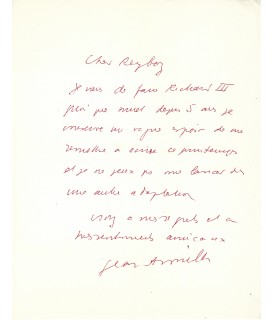 Cher Reybaz
Je viens de faire Richard III
plus que muet depuis 5 ans je
conserve un vague espoir de me
remettre à écrire ce printemps
et je ne peux pas me lancer dans
une autre adaptation
Croyez à mes regrets et à
mes sentiments amicaux
Jean Anouilh